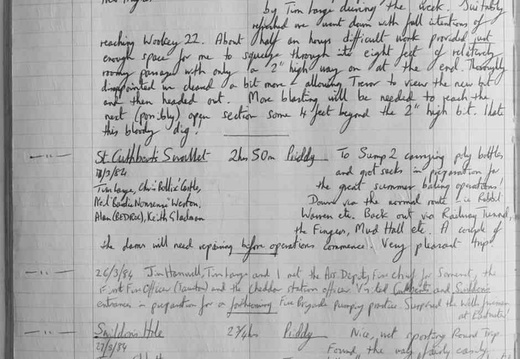 by Tim Large during the week. Suitably
refreshed we went down with full intentions of
reaching Wookey 22. About half an hours difficult work provided just
enough space for me to squeeze through into eight feet of relatively
roomy passage with only a 2" high way on at the end. Thoroughly
disappointed we cleared a bit more - allowing Trevor to view the new bit
and then headed out. More blasting will be needed to reach the
next (possibly) open section some 4 feet beyond the 2" high bit. I hate
this bloody dig!
St. Cuthbert's Swallet 2hrs 50m Priddy To Sump 2 carrying poly bottles
/3/84 and grot sacks in preparation for
Tim Large, Chris Castle, the great summer baling operations!
Nonsense Weston, Down via the normal route i.e. Rabbit
Alan Keith Gladman Warren etc. Back out via Railway Tunnel,
the Fingers, Mud Hall etc. A couple of
the dams will need repairing before operations commence. Very pleasant trip
26/3/84 Jim Hanwell, Tim Large and I met the Deputy Fire chief for Somerset, the
Fire Officer (Taunton) and the Cheddar Station officer. Visited Cuthberts and Swildons
entrances in preparation for a forthcoming Fire Brigade pumping practice. Surprised the
Swildons Hole 2¼hrs Priddy Nice, wet sporting Round Trip.
/3/84 Found the way fairly easily